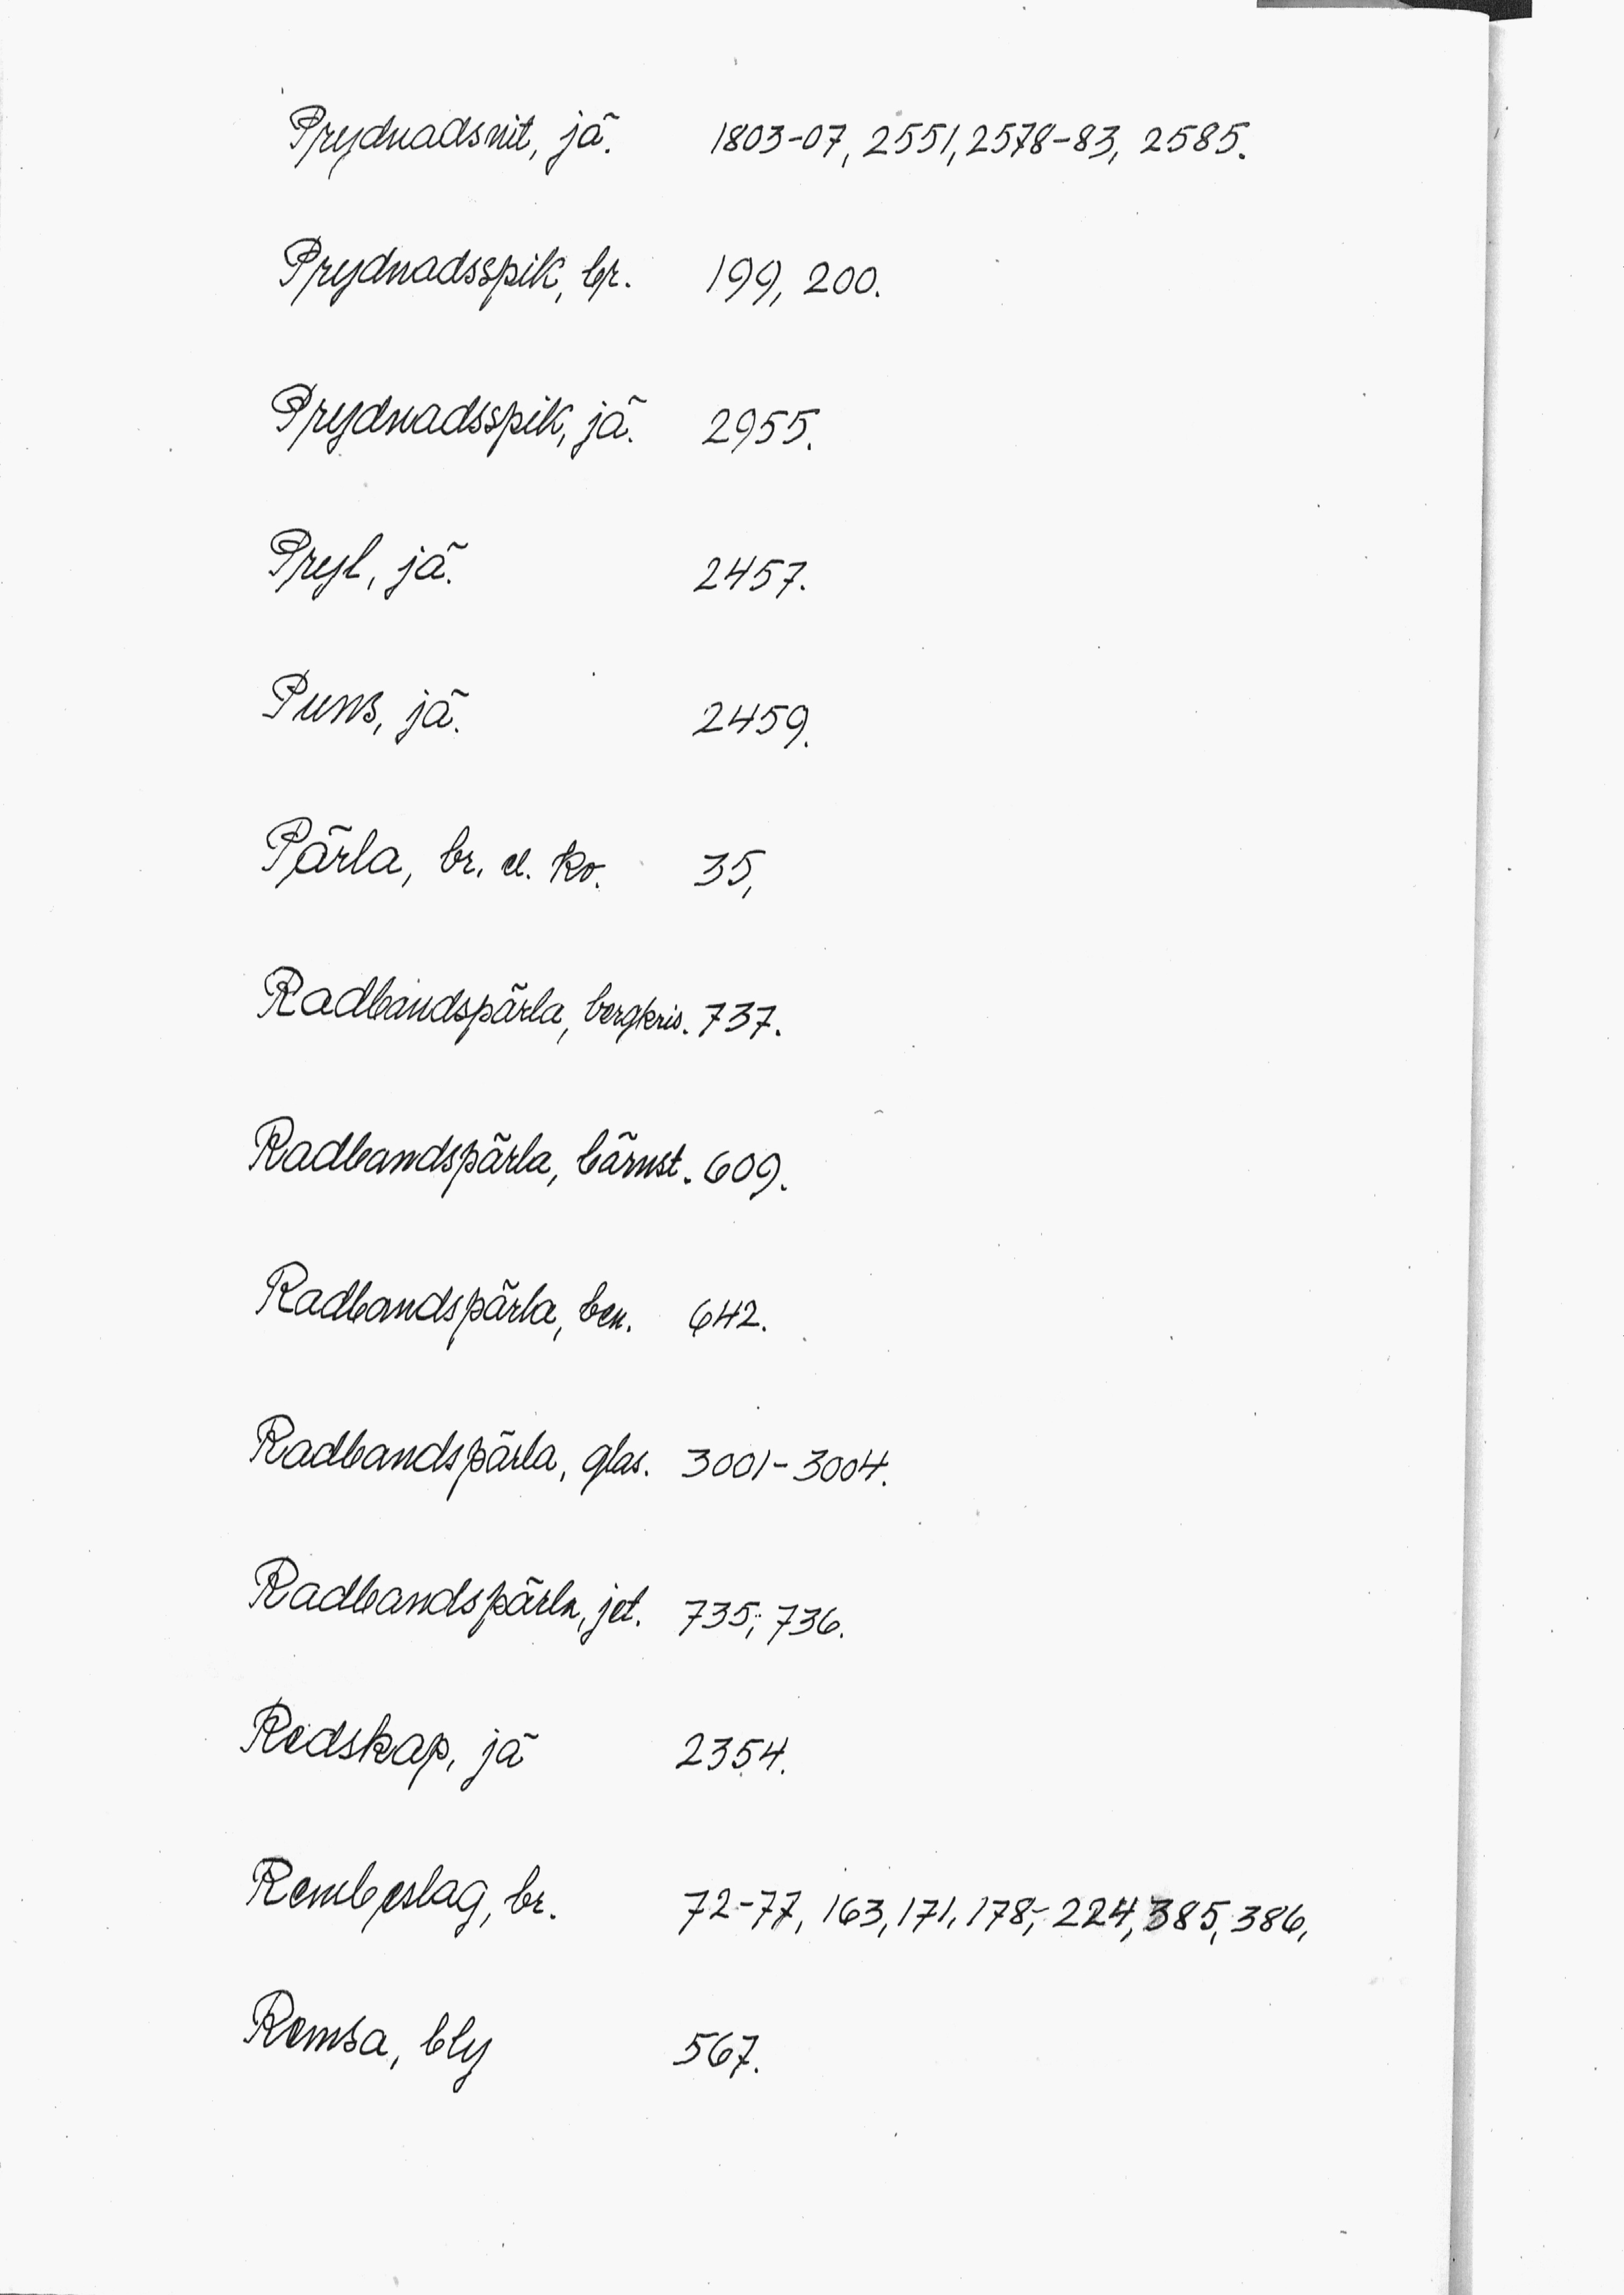 Prydnadsnit, jä. 1803-07, 2551, 2578-83, 2585.
Prydnadsspik, br. 199, 200.
Prydnadsspik, jä. 2955.
Pryl, jä. 2457.
Puns, jä. 2459.
Pärla, br. el. ko. 35,
Radbandspärla, bergkris. 737.
Radbandspärla, bärnst. 609.
Radbandspärla, ben. 642.
Radbandspärla, glas. 3001-3004.
Radbandspärla, jet. 735, 736.
Redskap, jä 2354.
Rembeslag, br. 72-77, 163, 171, 178, 224, 385, 386,
Remsa, bly 567.